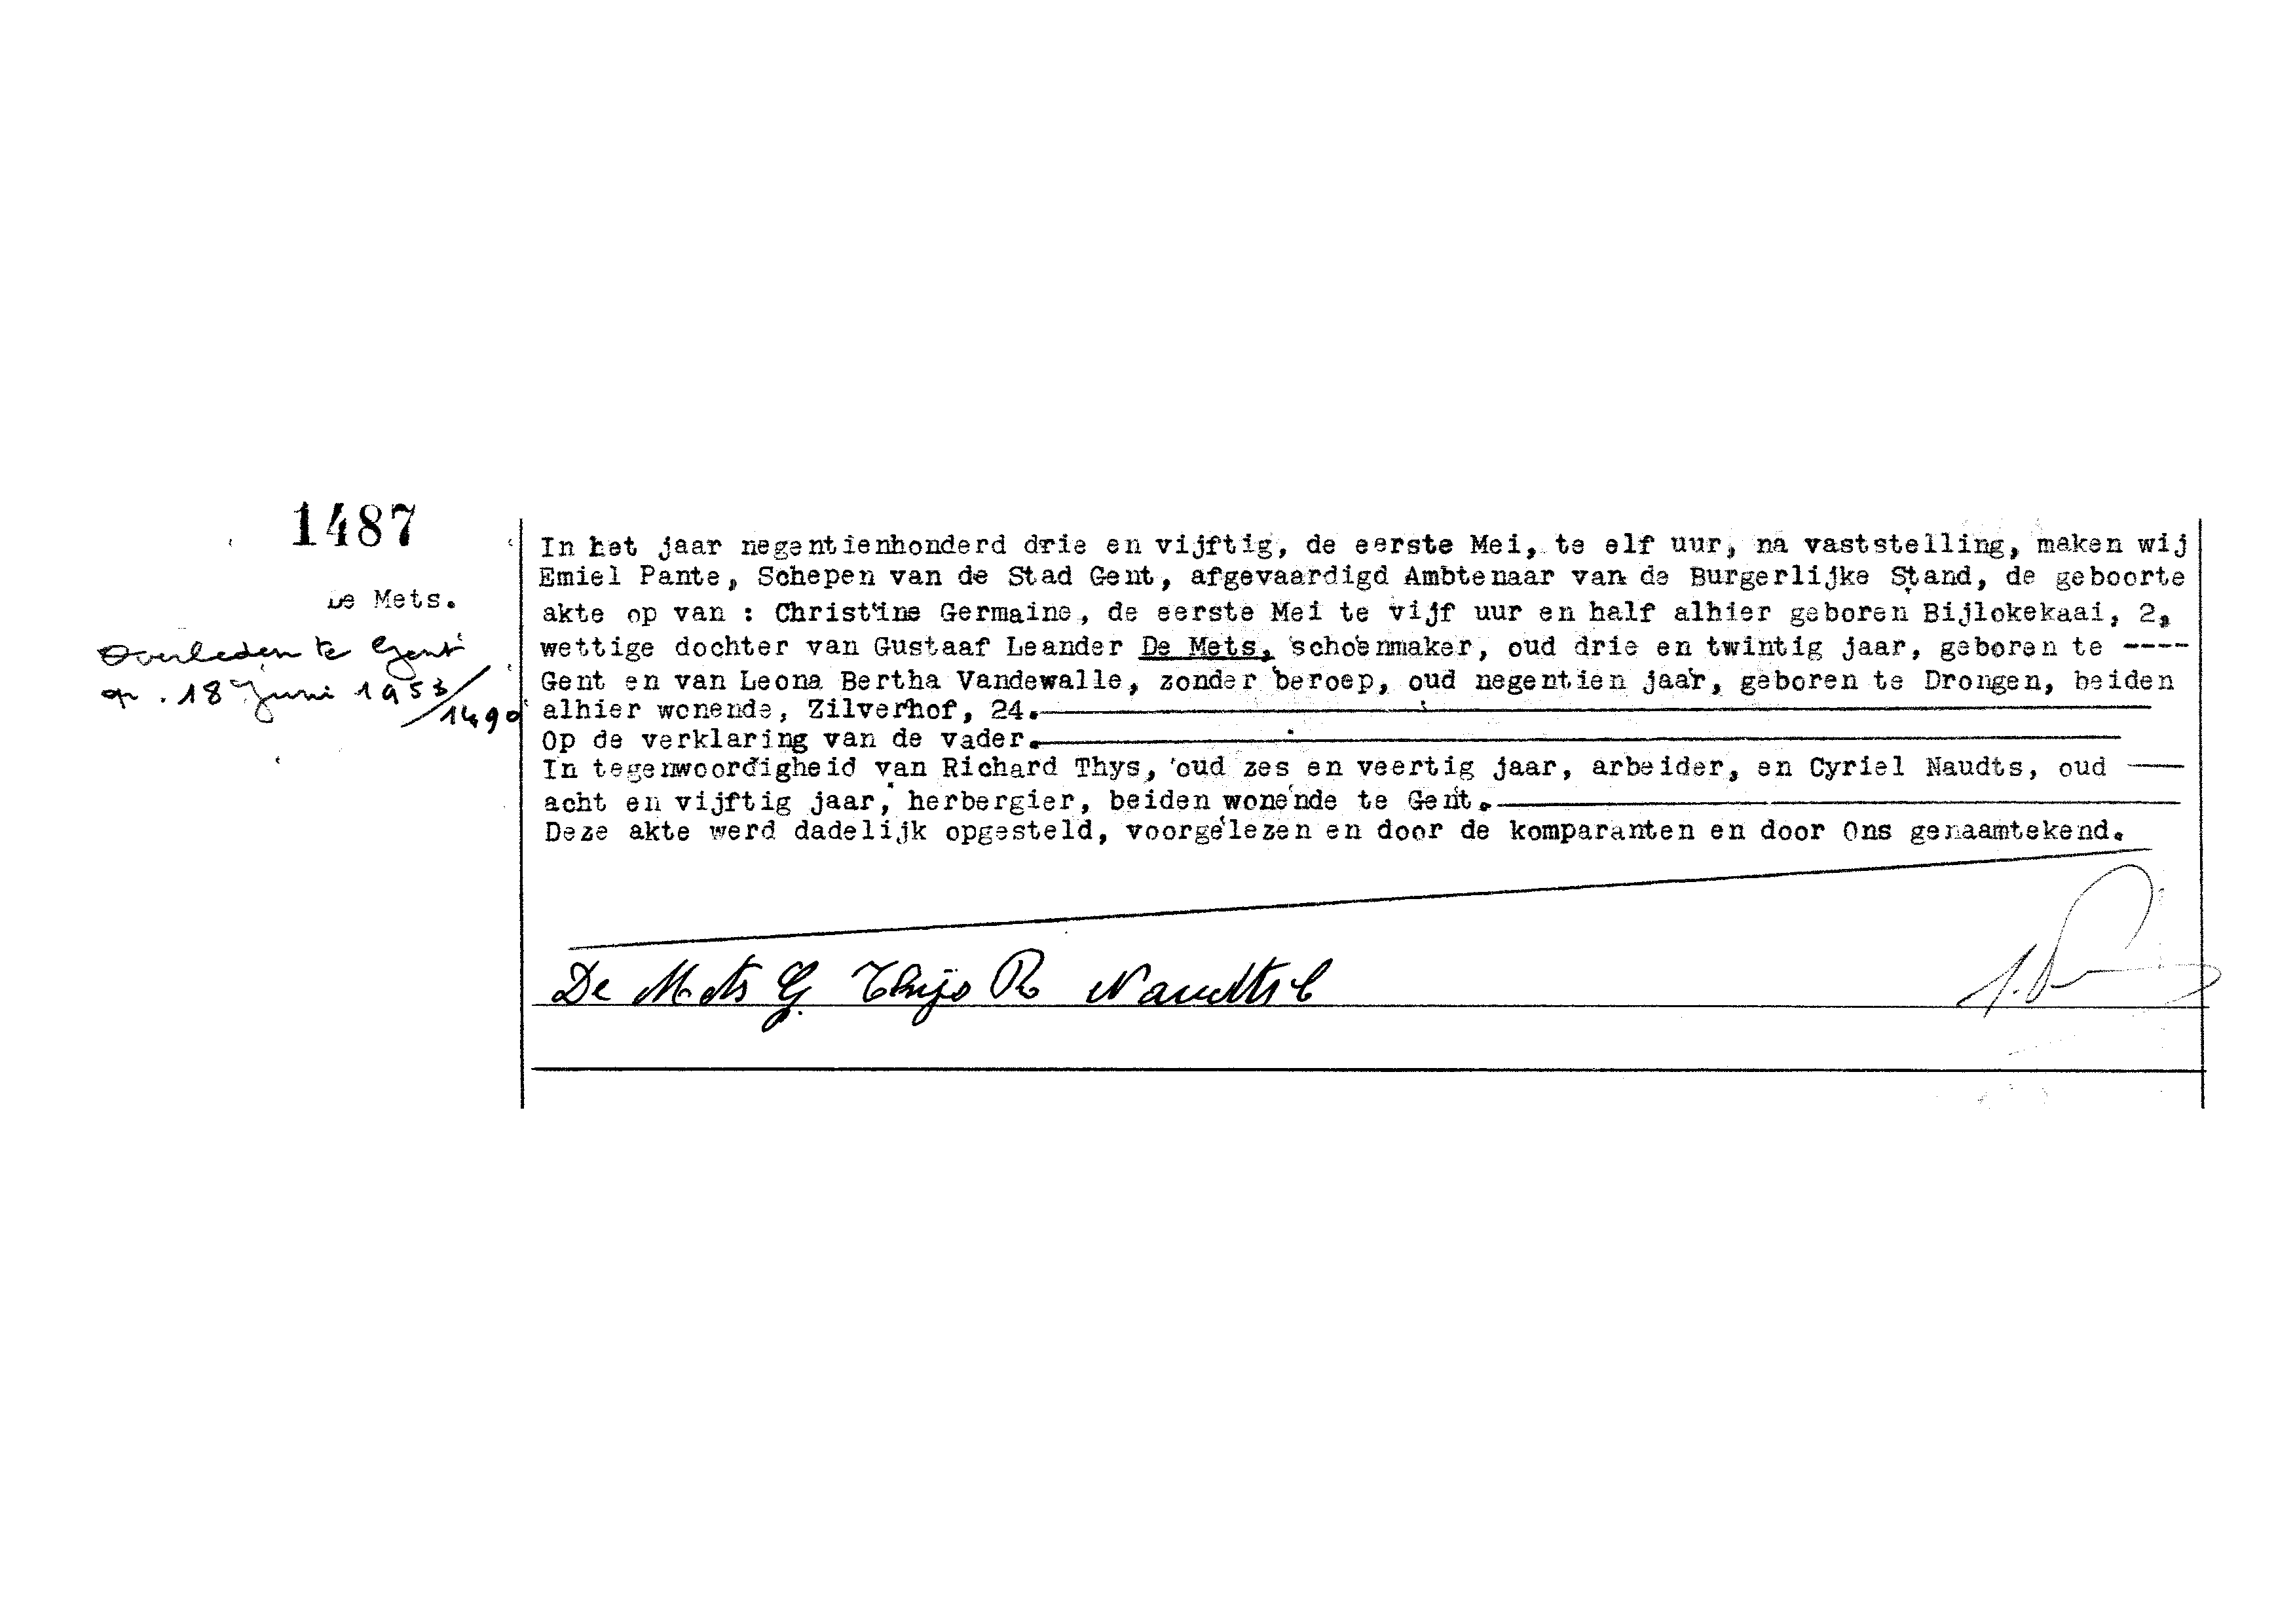 1487
De Mets.
Overleden te Gent
op. 18 Juni 1953/1490
In het jaar negentienhonderd drie en vijftig, de eerste Mei, te elf uur, na vaststelling, maken wij
Emiel Pante, Schepen van de Stad Gent, afgevaardigd Ambtenaar van de Burgerlijke Stand, de geboorte
akte op van : Christine Germaine, de eerste Mei te vijf uur en half alhier geboren Bijlokekaai, 2,
wettige dochter van Gustaaf Leander De Mets, schoenmaker, oud drie en twintig jaar, geboren te ----
Gent en van Leona Bertha Vandewalle, zonder beroep, oud negentien jaar, geboren te Drongen, beiden
alhier wonende, Zilverhof, 24.
Op de verklaring van de vader.
In tegenwoordigheid van Richard Thys, oud zes en veertig jaar, arbeider, en Cyriel Naudts, oud
acht en vijftig jaar, herbergier, beiden wonende te Gent.
Deze akte werd dadelijk opgesteld, voorgelezen en door de komparanten en door Ons genaamtekend.
De Mets G. Thijs R Naudts C